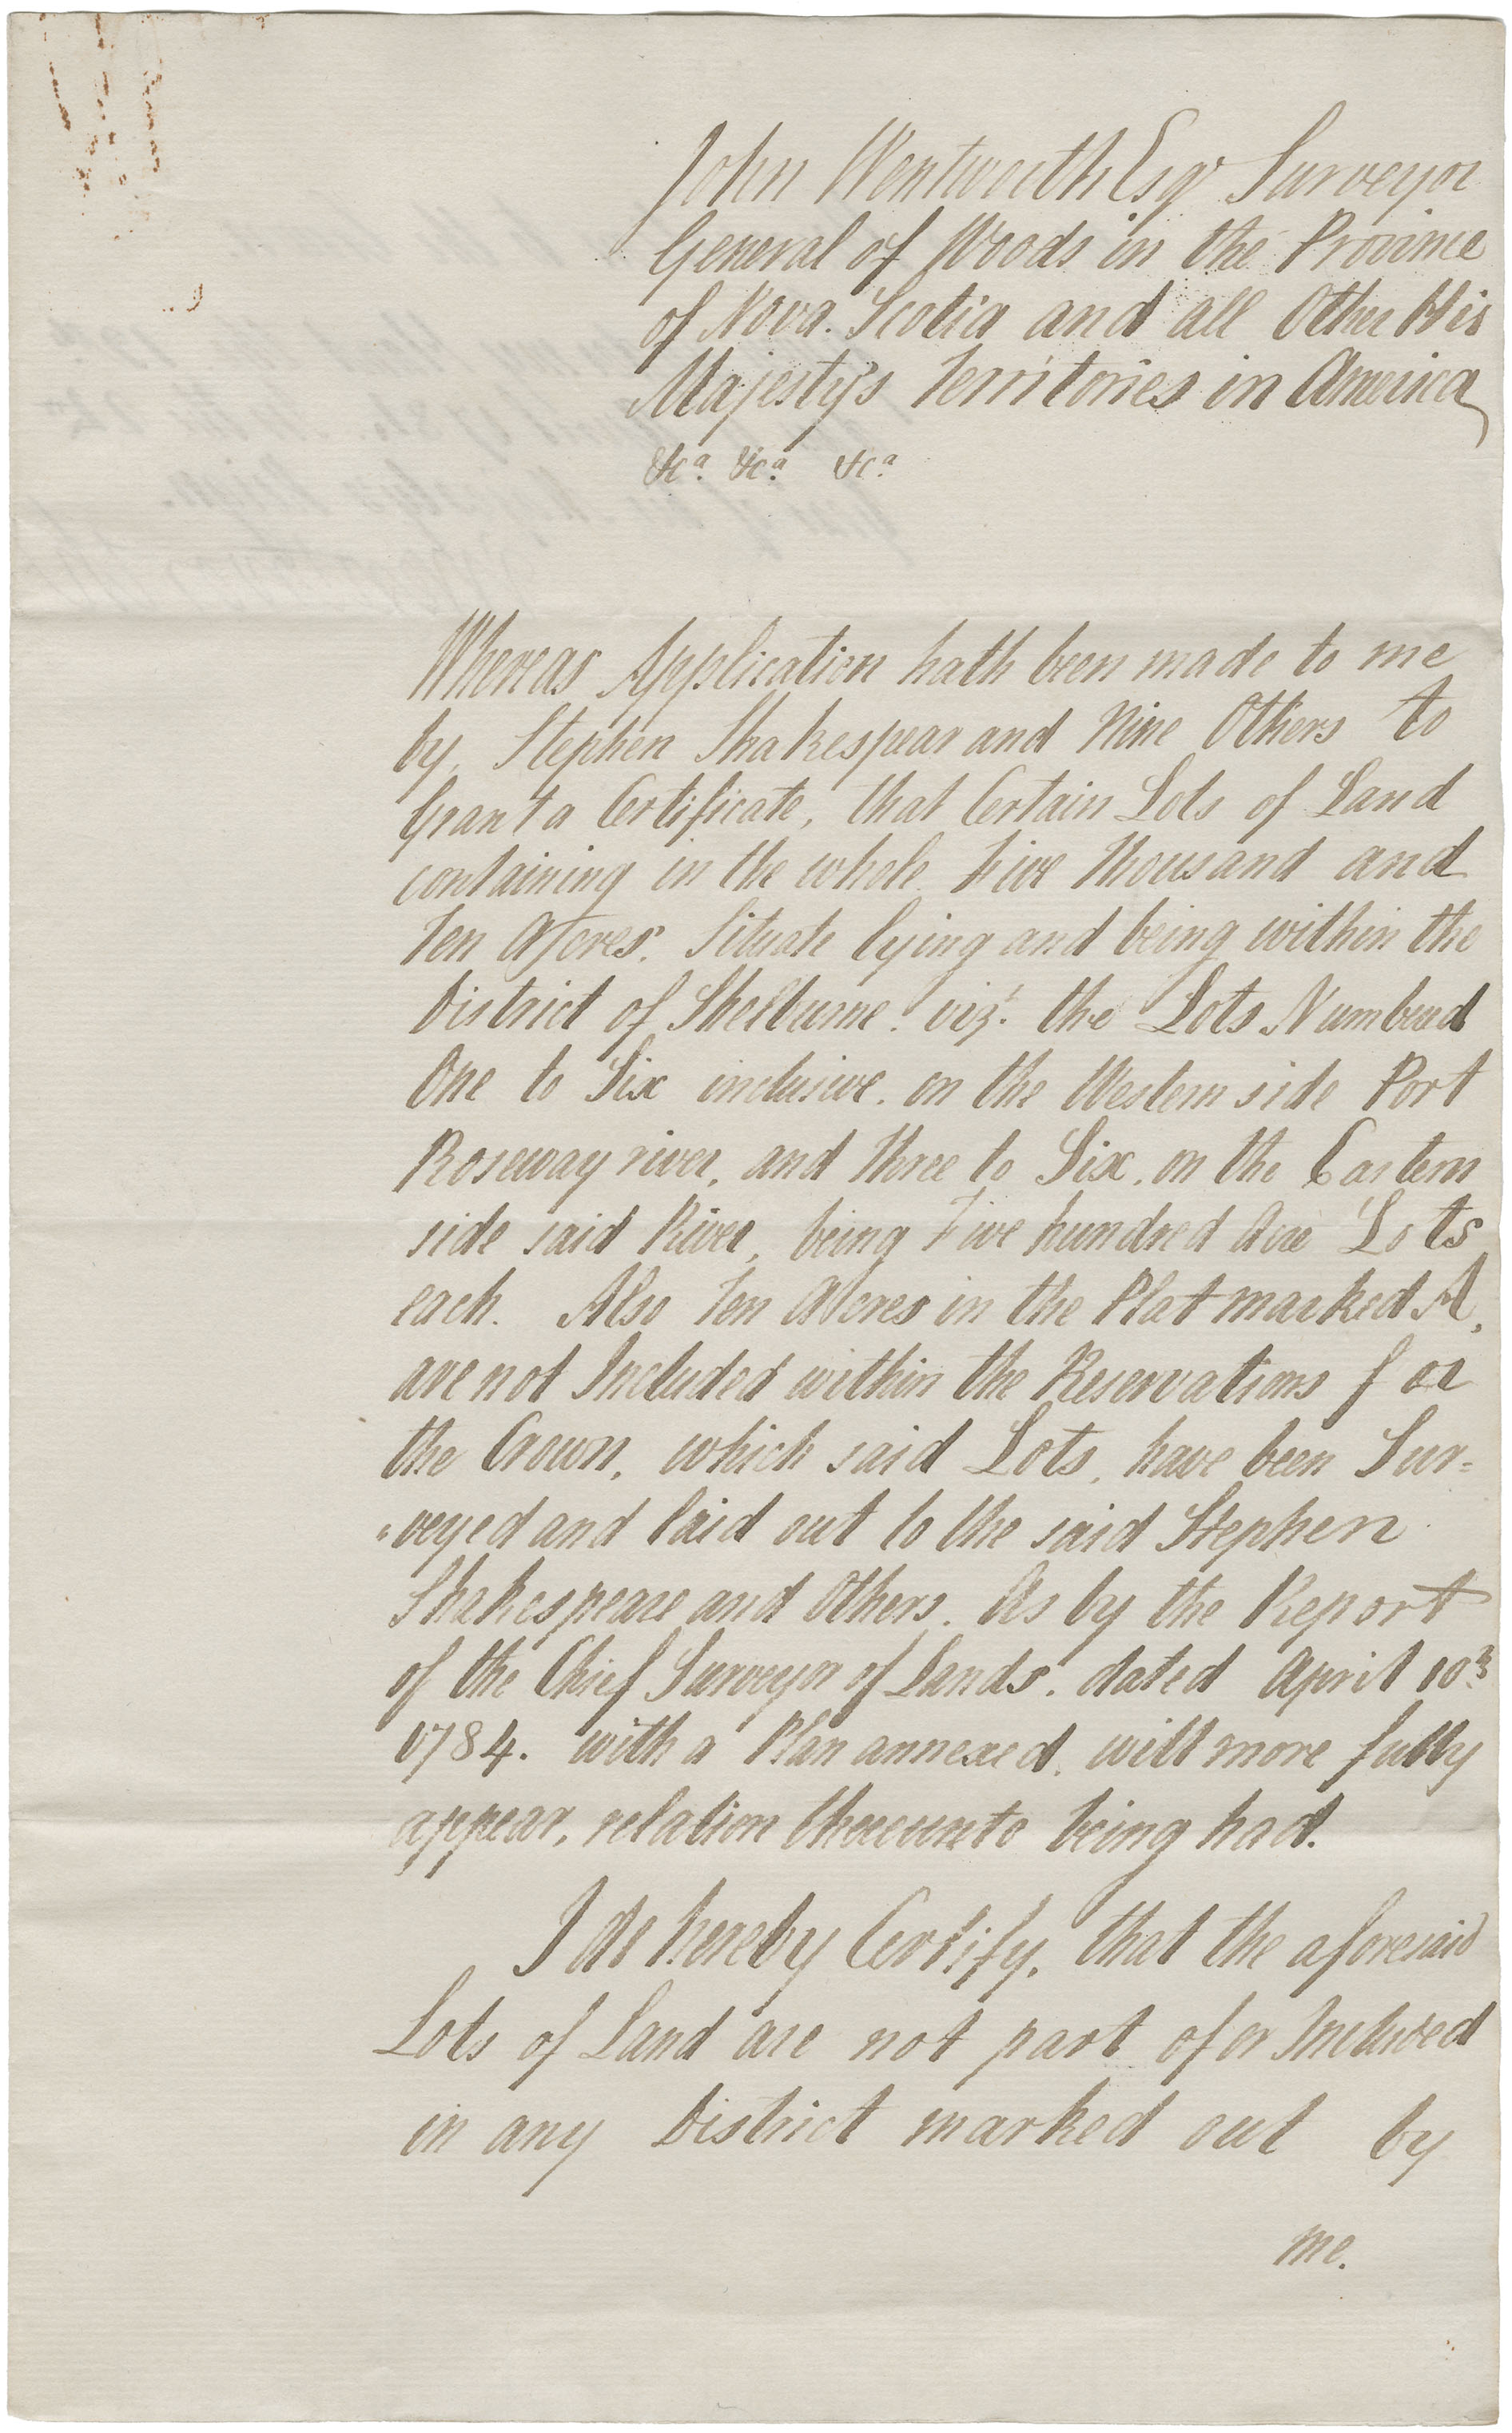 John Wentworth Esqr Surveyor
General of Woods in the Province
of Nova. Scotia and all Other His
Majesty's Territories in America
&ca. &ca. &ca.
Whereas Application hath been made to me
by, Stephen Shakespear and Nine Others to
Grant a Certificate, that Certain Lots of Land
containing in the whole Five Thousand and
Ten Acres. Situate lying and being within the
District of Shelburne. vizt. the Lots Numbered
One to Six inclusive. on the Western side Port
Roseway river, and three to Six, on the Eastern
side said River, being Five hundred Acre Lots
each. Also Ten Acres in the Plat marked A,
are not Included within the Reservations for
the Crown, which said Lots, have been Sur=
"veyed and laid out to the said Stephen
Shakespeare and Others. As by the Report
of the Chief Surveyor of Lands. dated April 10th
1784. with a Plan annexed. will more fully
appear, relation thereunto being had.
I do hereby Certify, that the aforesaid
Lots of Land are not part of or Included
in any District marked out by
me.